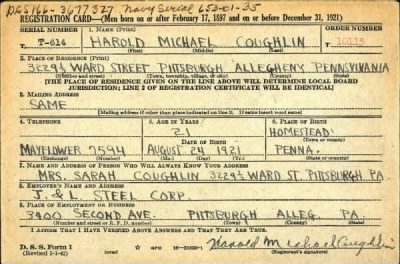 DSS166-3677327 Navy Serial 653-01-35
REGISTRATION CARD—(Men born on or after February 17, 1897 and on or before December 31, 1921)
SERIAL NUMBER 1. NAME (Print) ORDER NUMBER
T-614 HAROLD MICHAEL COUGHLIN 10115
(First) (Middle) (Last)
2. PLACE OF RESIDENCE (Print)
3229½ WARD STREET PITTSBURGH ALLEGHENY PENNSYLVANIA
(Number and street) (Town, township, village, or city) (County) (State)
[THE PLACE OF RESIDENCE GIVEN ON THE LINE ABOVE WILL DETERMINE LOCAL BOARD
JURISDICTION; LINE 2 OF REGISTRATION CERTIFICATE WILL BE IDENTICAL]
3. MAILING ADDRESS
SAME
[Mailing address if other than place indicated on line 2. If same insert word same]
4. TELEPHONE 5. AGE IN YEARS 6. PLACE OF BIRTH
21 HOMESTEAD
DATE OF BIRTH (Town or county)
MAYFLOWER 7594 AUGUST 24 1921 PENNA.
(Exchange) (Number) (Mo.) (Day) (Yr.) (State or country)
7. NAME AND ADDRESS OF PERSON WHO WILL ALWAYS KNOW YOUR ADDRESS
MRS. SARAH COUGHLIN 3229½ WARD ST. PITTSBURGH PA
8. EMPLOYER'S NAME AND ADDRESS
J. & L. STEEL CORP.
9. PLACE OF EMPLOYMENT OR BUSINESS
3400 SECOND AVE. PITTSBURGH ALLEG. PA.
(Number and street or R. F. D. number) (Town) (County) (State)
I AFFIRM THAT I HAVE VERIFIED ABOVE ANSWERS AND THAT THEY ARE TRUE.
D. S. S. Form 1
(Revised 1-1-42) Harold Michael Coughlin
(Registrant's signature)